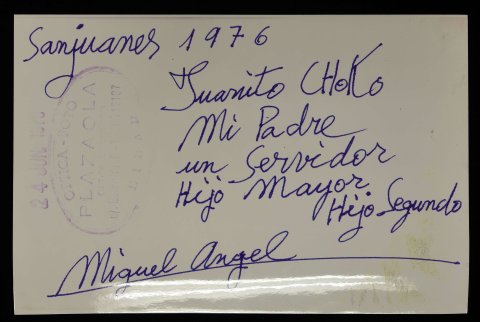 Sanjuanes 1976
Juanito CHOKO
Mi Padre
un Servidor
Hijo Mayor
Hijo Segundo
Miguel Angel
24 JUN. 1976
OPTICA-FOTO
PLAZAOLA